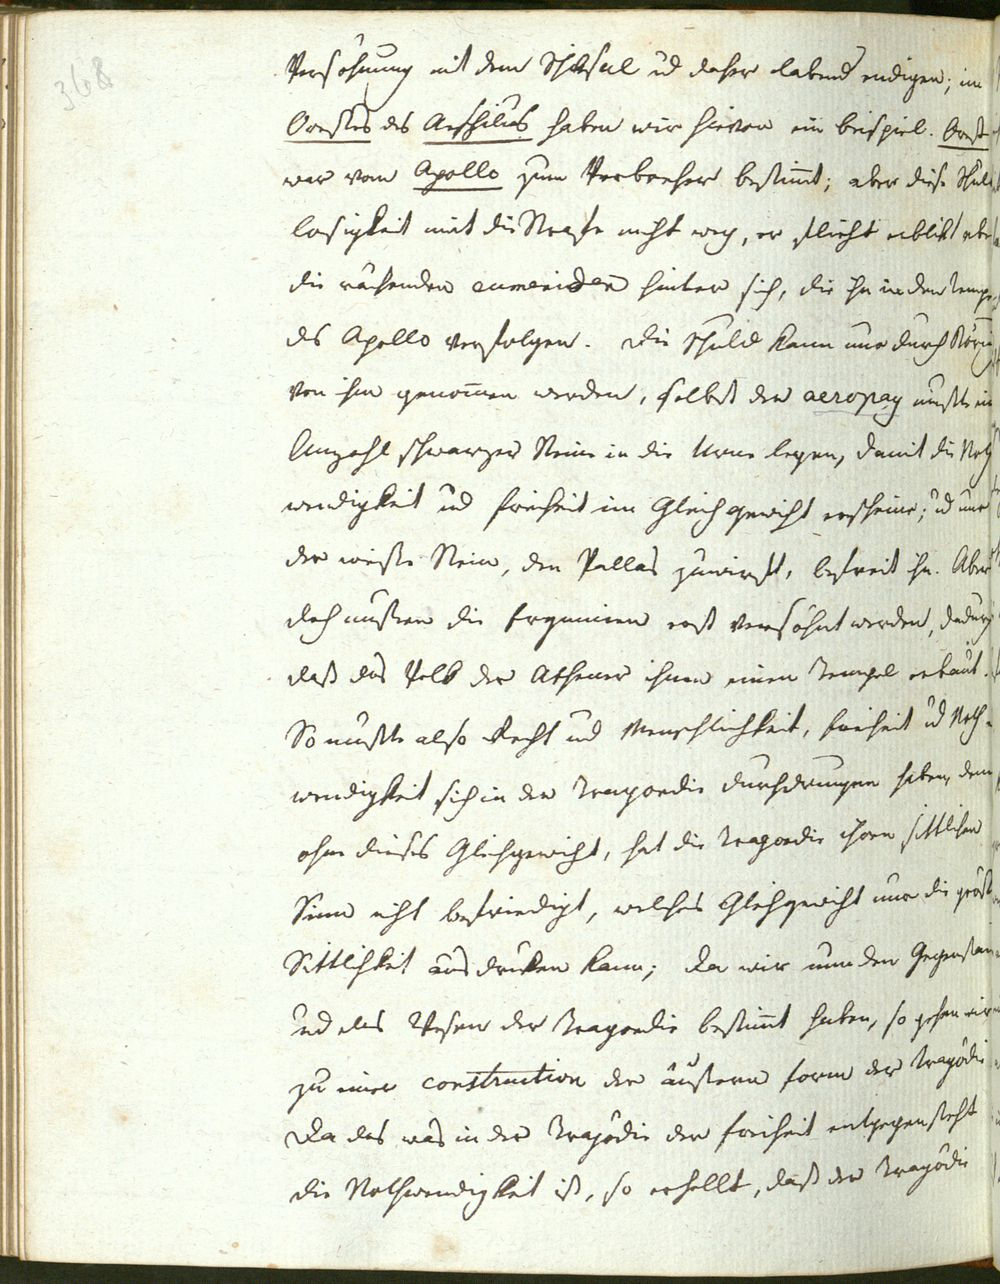 368
Versöhnung mit dem Schiksal ud daher labend endigen; im
Orestes des Aeschilus haben wir hievon ein beispiel. Orest
war vom Apollo zum Verbrecher bestimt; aber diese Schuld
losigkeit nimt die Strafe nicht weg, er flieht erblikt aber
die rächenden eumeniden hinter sich, die ihn in den Tempe
des Apollo verfolgen. die Schuld kann nur durch
von ihm genomen werden, selbst der aeropag mußte ein
Anzahl schwarzer Steine in die Urne legen, damit die Noth
wendigkeit ud freiheit im Gleichgewicht erscheine; ud nur
der weiße Stein, den Pallas zuwirft, befreit ihn. Aber
doch mußten die Erynnien erst versöhnt werden, dadurch
daß das Volk der Athener ihnen einen Tempel erbaut.
So mußte also Recht ud Menschlichkeit, freiheit ud Noth-
wendigkeit sich in der Tragoedie durchdrungen haben, denn
ohne dieses Gleichgewicht, hat die Tragoedie ihren sittlichen
Sinn nicht befriedigt, welches Gleichgewicht nur die größt
Sittlichkeit ausdruken kann; Da wir nun den Gegenstan
ud das Wesen der Tragoedie bestimt haben, so gehen wir
zu einer construction der äußern form der Tragödie
Da das was in der Tragödie der freiheit entgegensteht
die Nothwendigkeit ist, so erhellt, daß der Tragödie